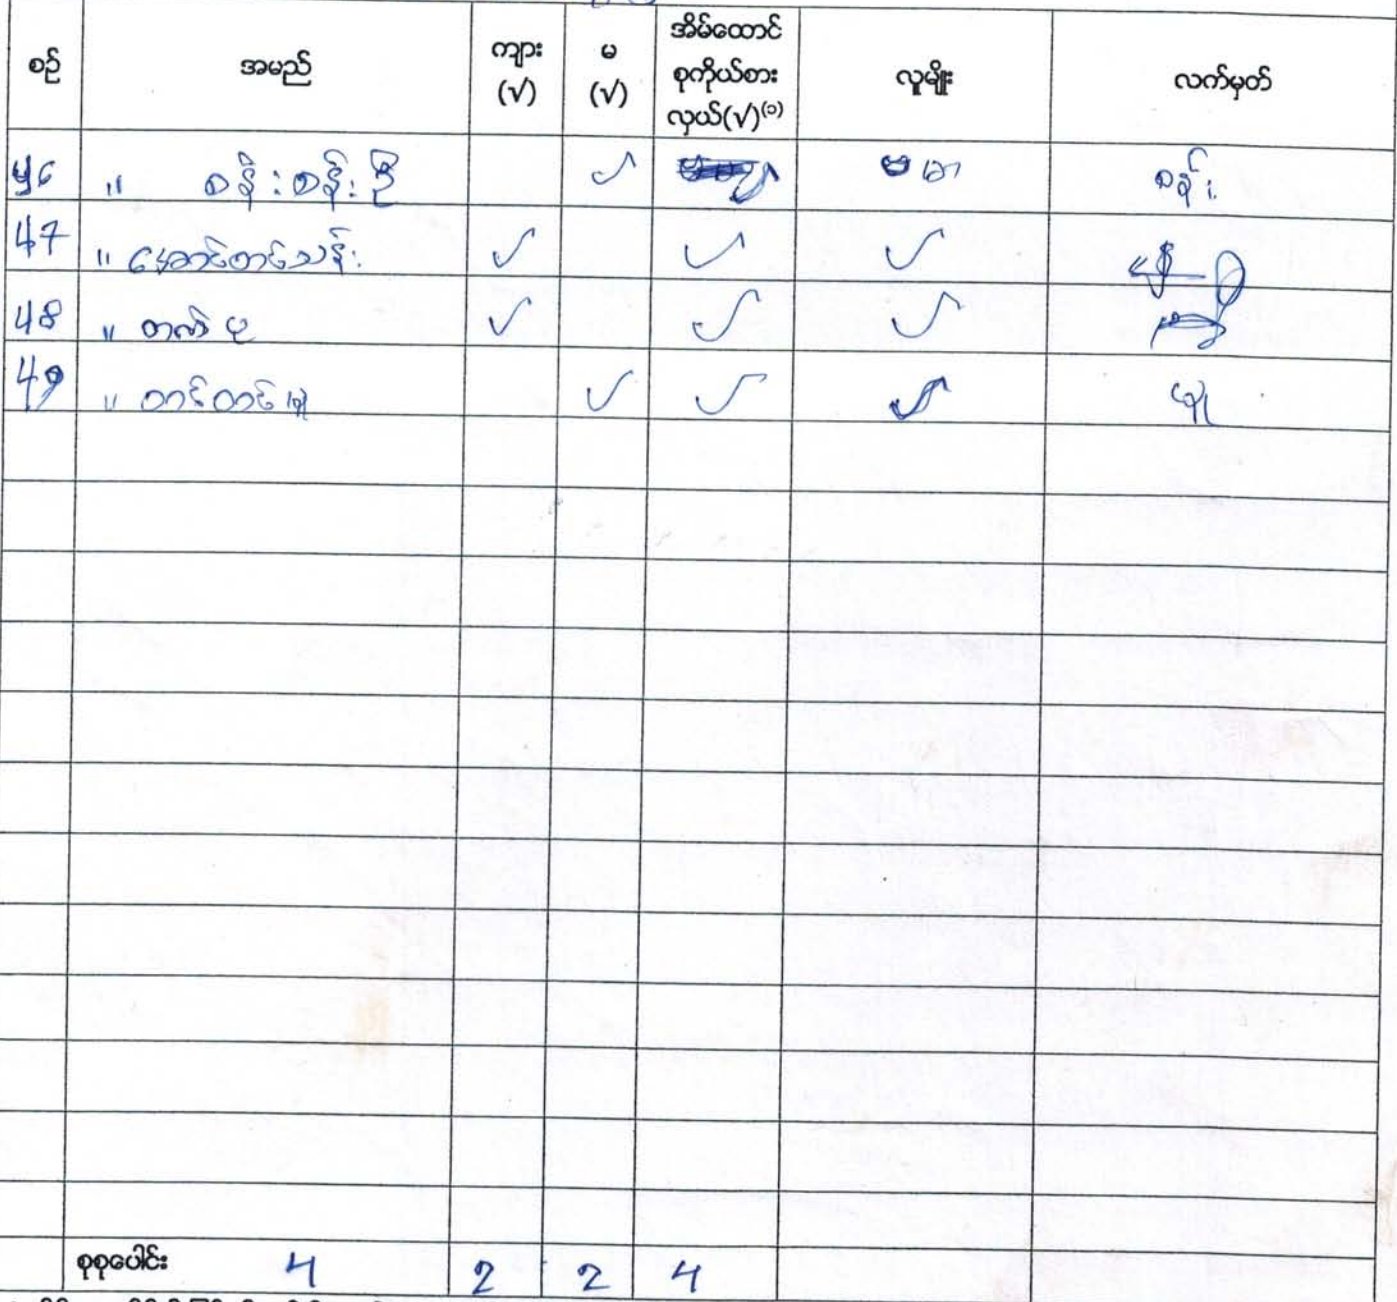 စဉ် အမည် ကျား (√) မ (√) အိမ်ထောင်စုကိုယ်စားလှယ်(√)⁽¹⁾ လူမျိုး လက်မှတ်
46 " စန်းစန်းဦး ✓ ✓ ဗမာ စန်း
47 " အောင်တင်သန်း ✓ ✓ ✓
48 " ✓ ✓ ✓
49 " တင်တင်ဖြူ ✓ ✓ ✓ ဖြူ
စုစုပေါင်း 4 2 2 4